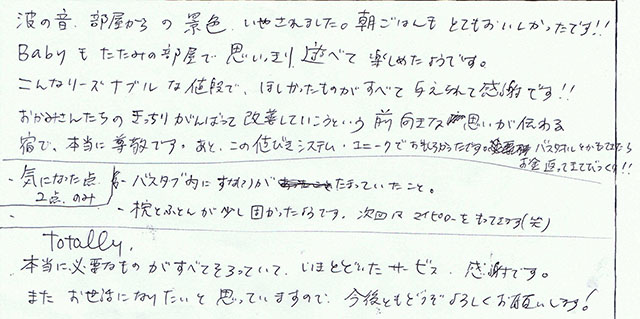 波の音、部屋からの景色、いやされました。朝ごはんもとてもおいしかったです!!
Babyもたたみの部屋で思いっきり遊べて楽しめたようです。
こんなリーズナブルな値段で、ほしかったものがすべて与えられて感謝です!!
おかみさんたちのきっちりがんばって改善していこうという前向きな思いが伝わる
宿で、本当に尊敬です。あと、この値びきシステム・ユニークでおもしろかったです。バスタオルとかもってきたら
お金返ってきてびっくり!!
・気になった点 2点のみ
・バスタブ内にすながたまっていたこと。
・枕とふとんが少し固かったようです。次回はマイピローをもってきます(笑)
totally,
本当に必要なものがすべてそろっていて、いきとどいたサービス、感謝です。
またお世話になりたいと思っていますので、今後ともどうぞよろしくお願いします!